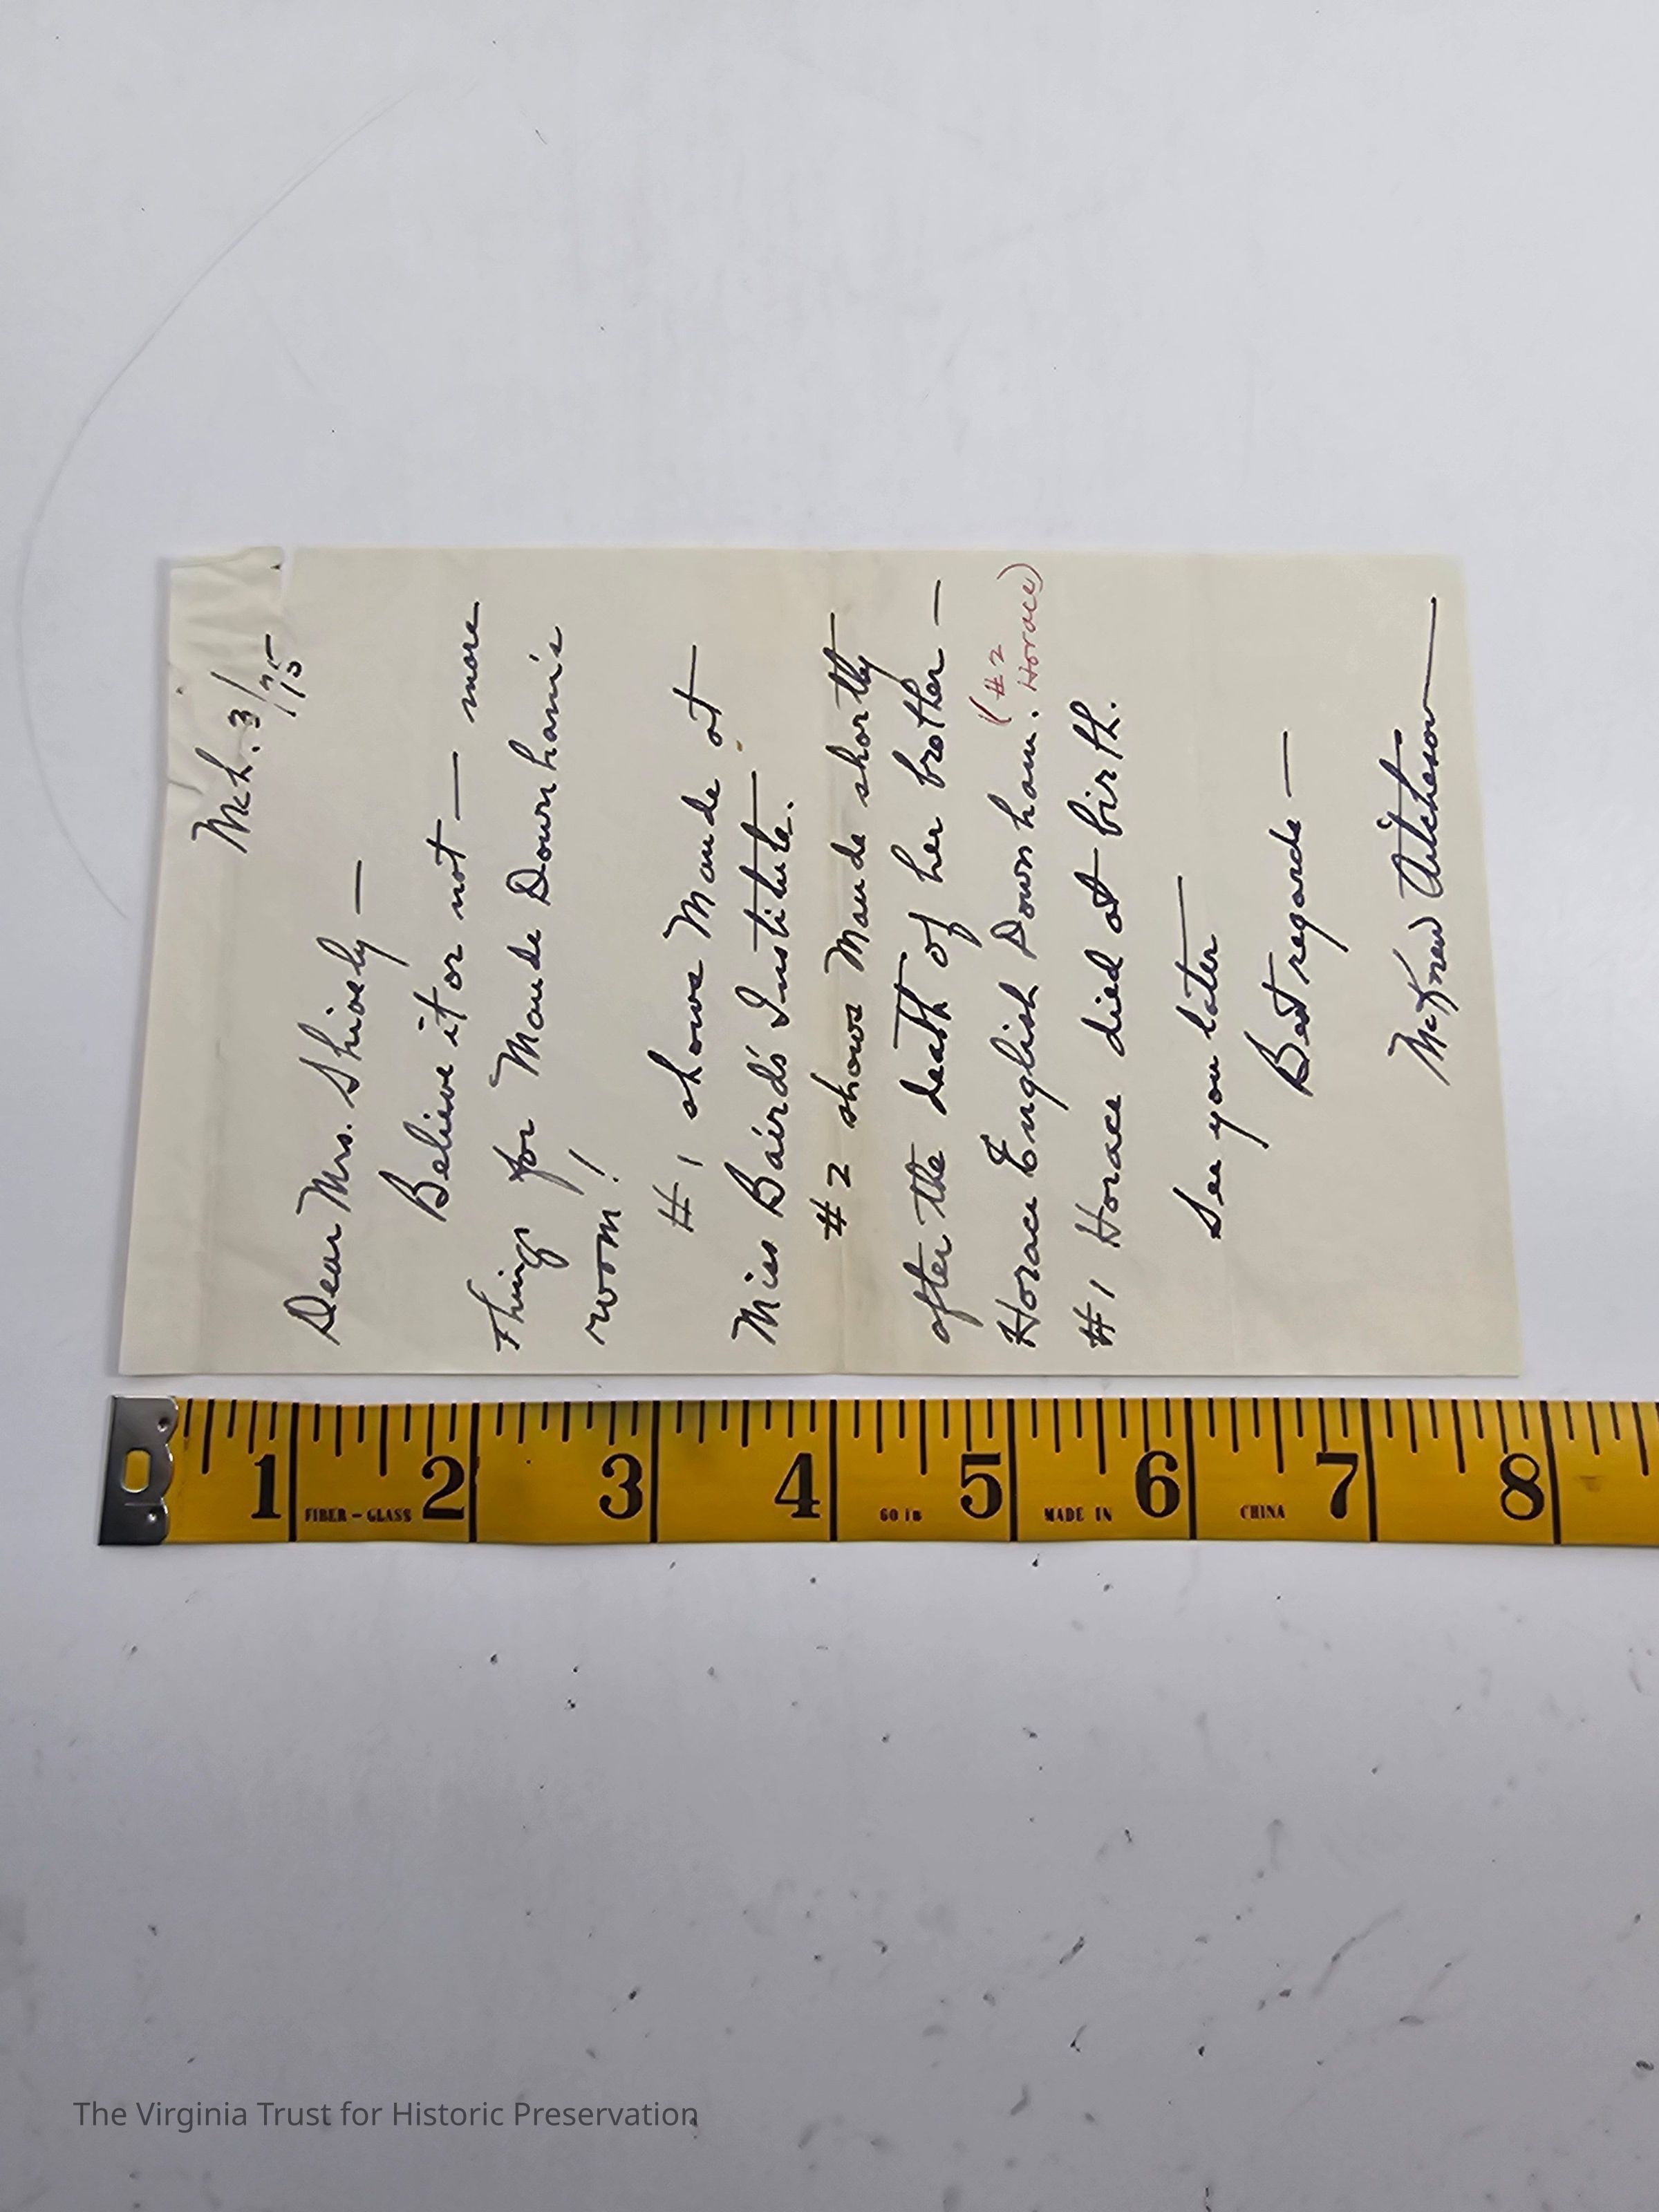 Mch. 3/75
Dear Mrs. Shively —
Believe it or not — more
things for Maude Downham's
room!
#1 shows Maude at
Miss Baird's Institute.
#2 shows Maude shortly
after the death of her brother —
Horace English Downham. (#2 Horace)
#1 Horace died at birth.
See you later —
Best regards —
McKnew Aitcheson
1 2 3 4 5 6 7 8
FIBER-GLASS 60 in MADE IN CHINA
The Virginia Trust for Historic Preservation